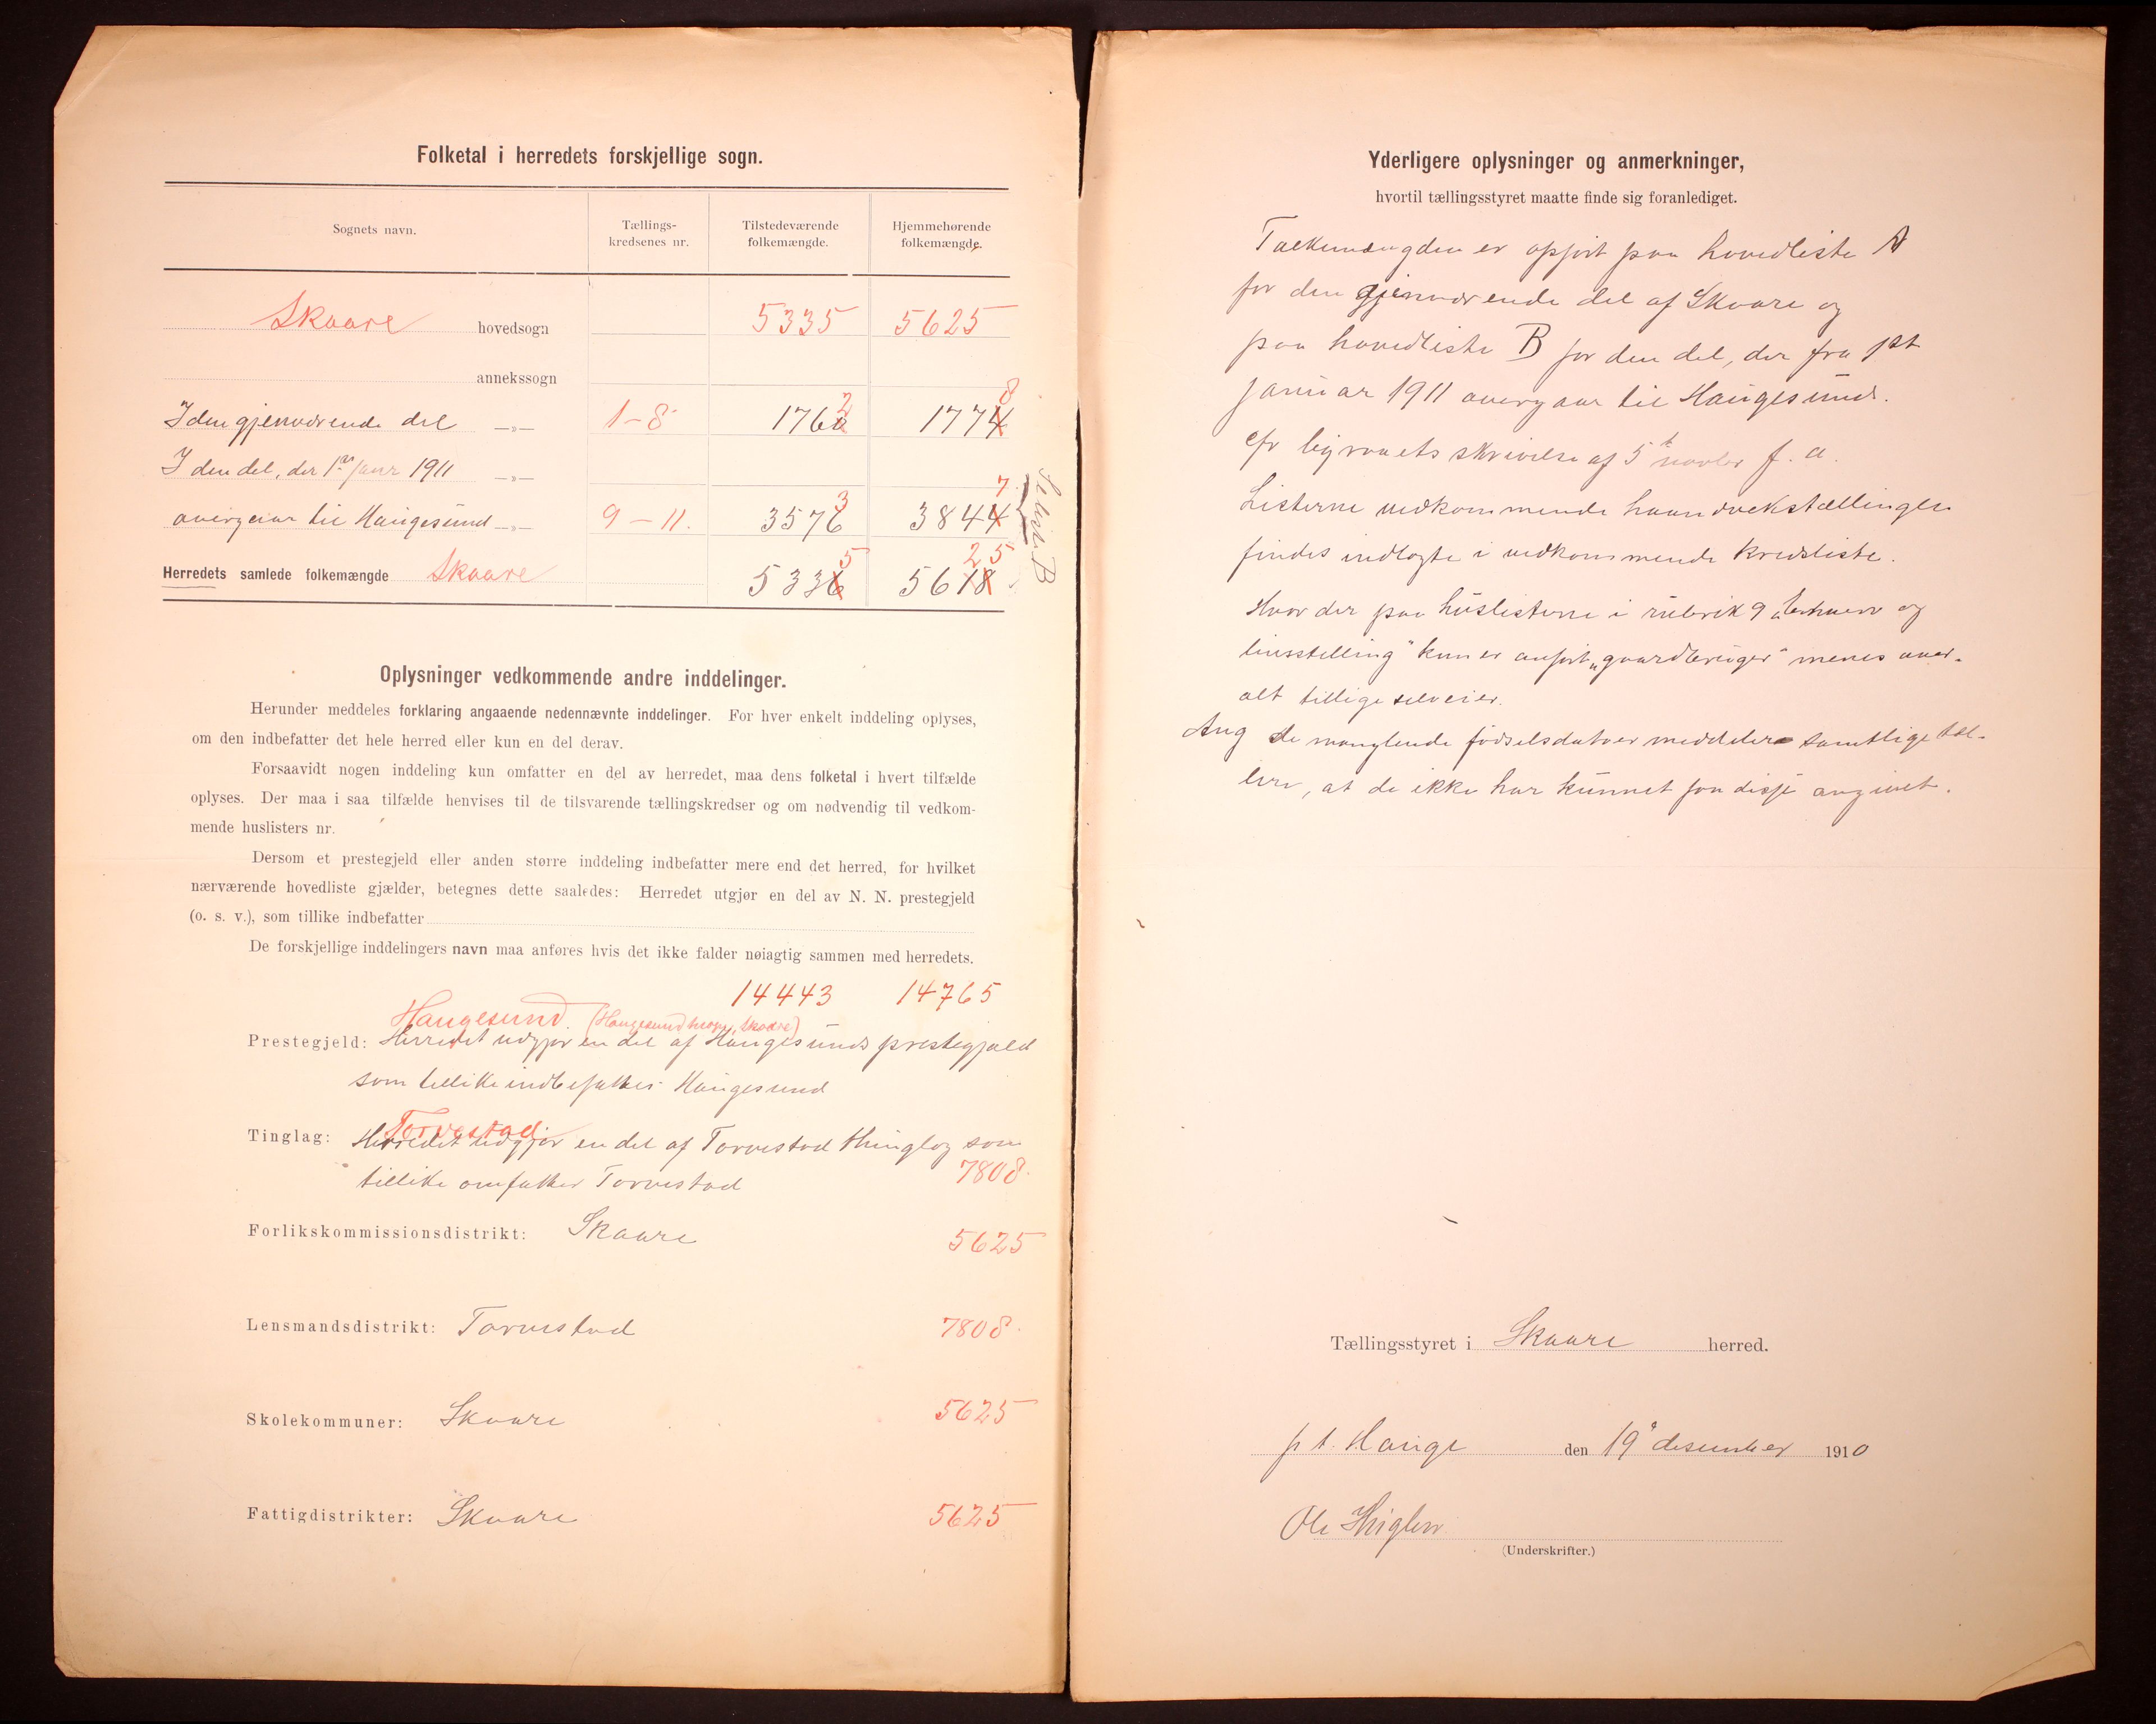 Folketal i herredets forskjellige sogn.
Sognets navn.
Tællings-
kredsenes nr.
Tilstedeværende
folkemængde.
Hjemmehørende
folkemængde.
Skaare hovedsogn 5335 5625
annekssogn
8
I den gjenværende del —„— 1-8 1762 1774
I den del, der 1ste Januar 1911 —„—
7
overgaar til Haugesund —„— 9-11. 3576 3844
3
Herredets samlede folkemængde Skaare 5336 5618
5 25
Se liste B
Oplysninger vedkommende andre inddelinger.
Herunder meddeles forklaring angaaende nedennævnte inddelinger. For hver enkelt inddeling oplyses,
om den indbefatter det hele herred eller kun en del derav.
Forsaavidt nogen inddeling kun omfatter en del av herredet, maa dens folketal i hvert tilfælde
oplyses. Der maa i saa tilfælde henvises til de tilsvarende tællingskredser og om nødvendig til vedkom-
mende huslisters nr.
Dersom et prestegjeld eller anden større inddeling indbefatter mere end det herred, for hvilket
nærværende hovedliste gjælder, betegnes dette saaledes: Herredet utgjør en del av N. N. prestegjeld
(o. s. v.), som tillike indbefatter
De forskjellige inddelingers navn maa anføres hvis det ikke falder nøiagtig sammen med herredets.
14443 14765
Haugesund. (Haugesund, Skaare)
Prestegjeld: Herredet udgjør en del af Haugesunds prestegjæld
som tillike indbefatter Haugesund
Torvestad
Tinglag: Herredet udgjør en del af Torvestad thinglag som
tillike omfatter Torvestad 7808.
Forlikskommissionsdistrikt: Skaare 5625
Lensmandsdistrikt: Torvestad 7808.
Skolekommuner: Skaare 5625
Fattigdistrikter: Skaare 5625
Yderligere oplysninger og anmerkninger,
hvortil tællingsstyret maatte finde sig foranlediget.
Folkemængden er opført paa hovedliste A
for den gjenværende del af Skaare og
paa hovedliste B for den del, der fra 1st
januar 1911 overgaar til Haugesund.
cfr skrivelse af 5t novbr f. a.
Listerne vedkommende haandverkstællingen
findes indlagte i vedkommende kredsliste.
Hvor der paa huslisterne i rubrik 9 „erhverv og
livsstilling" kun er anført „gaardbruger" menes over-
alt tillige selveier.
Ang de manglende fødselsdatoer meddeler samtlige tæl-
lere, at de ikke har kunnet faa disse angivet.
Tællingsstyret i Skaare herred.
p t. Hauge den 19 desember 1910
Ole
(Underskrifter.)